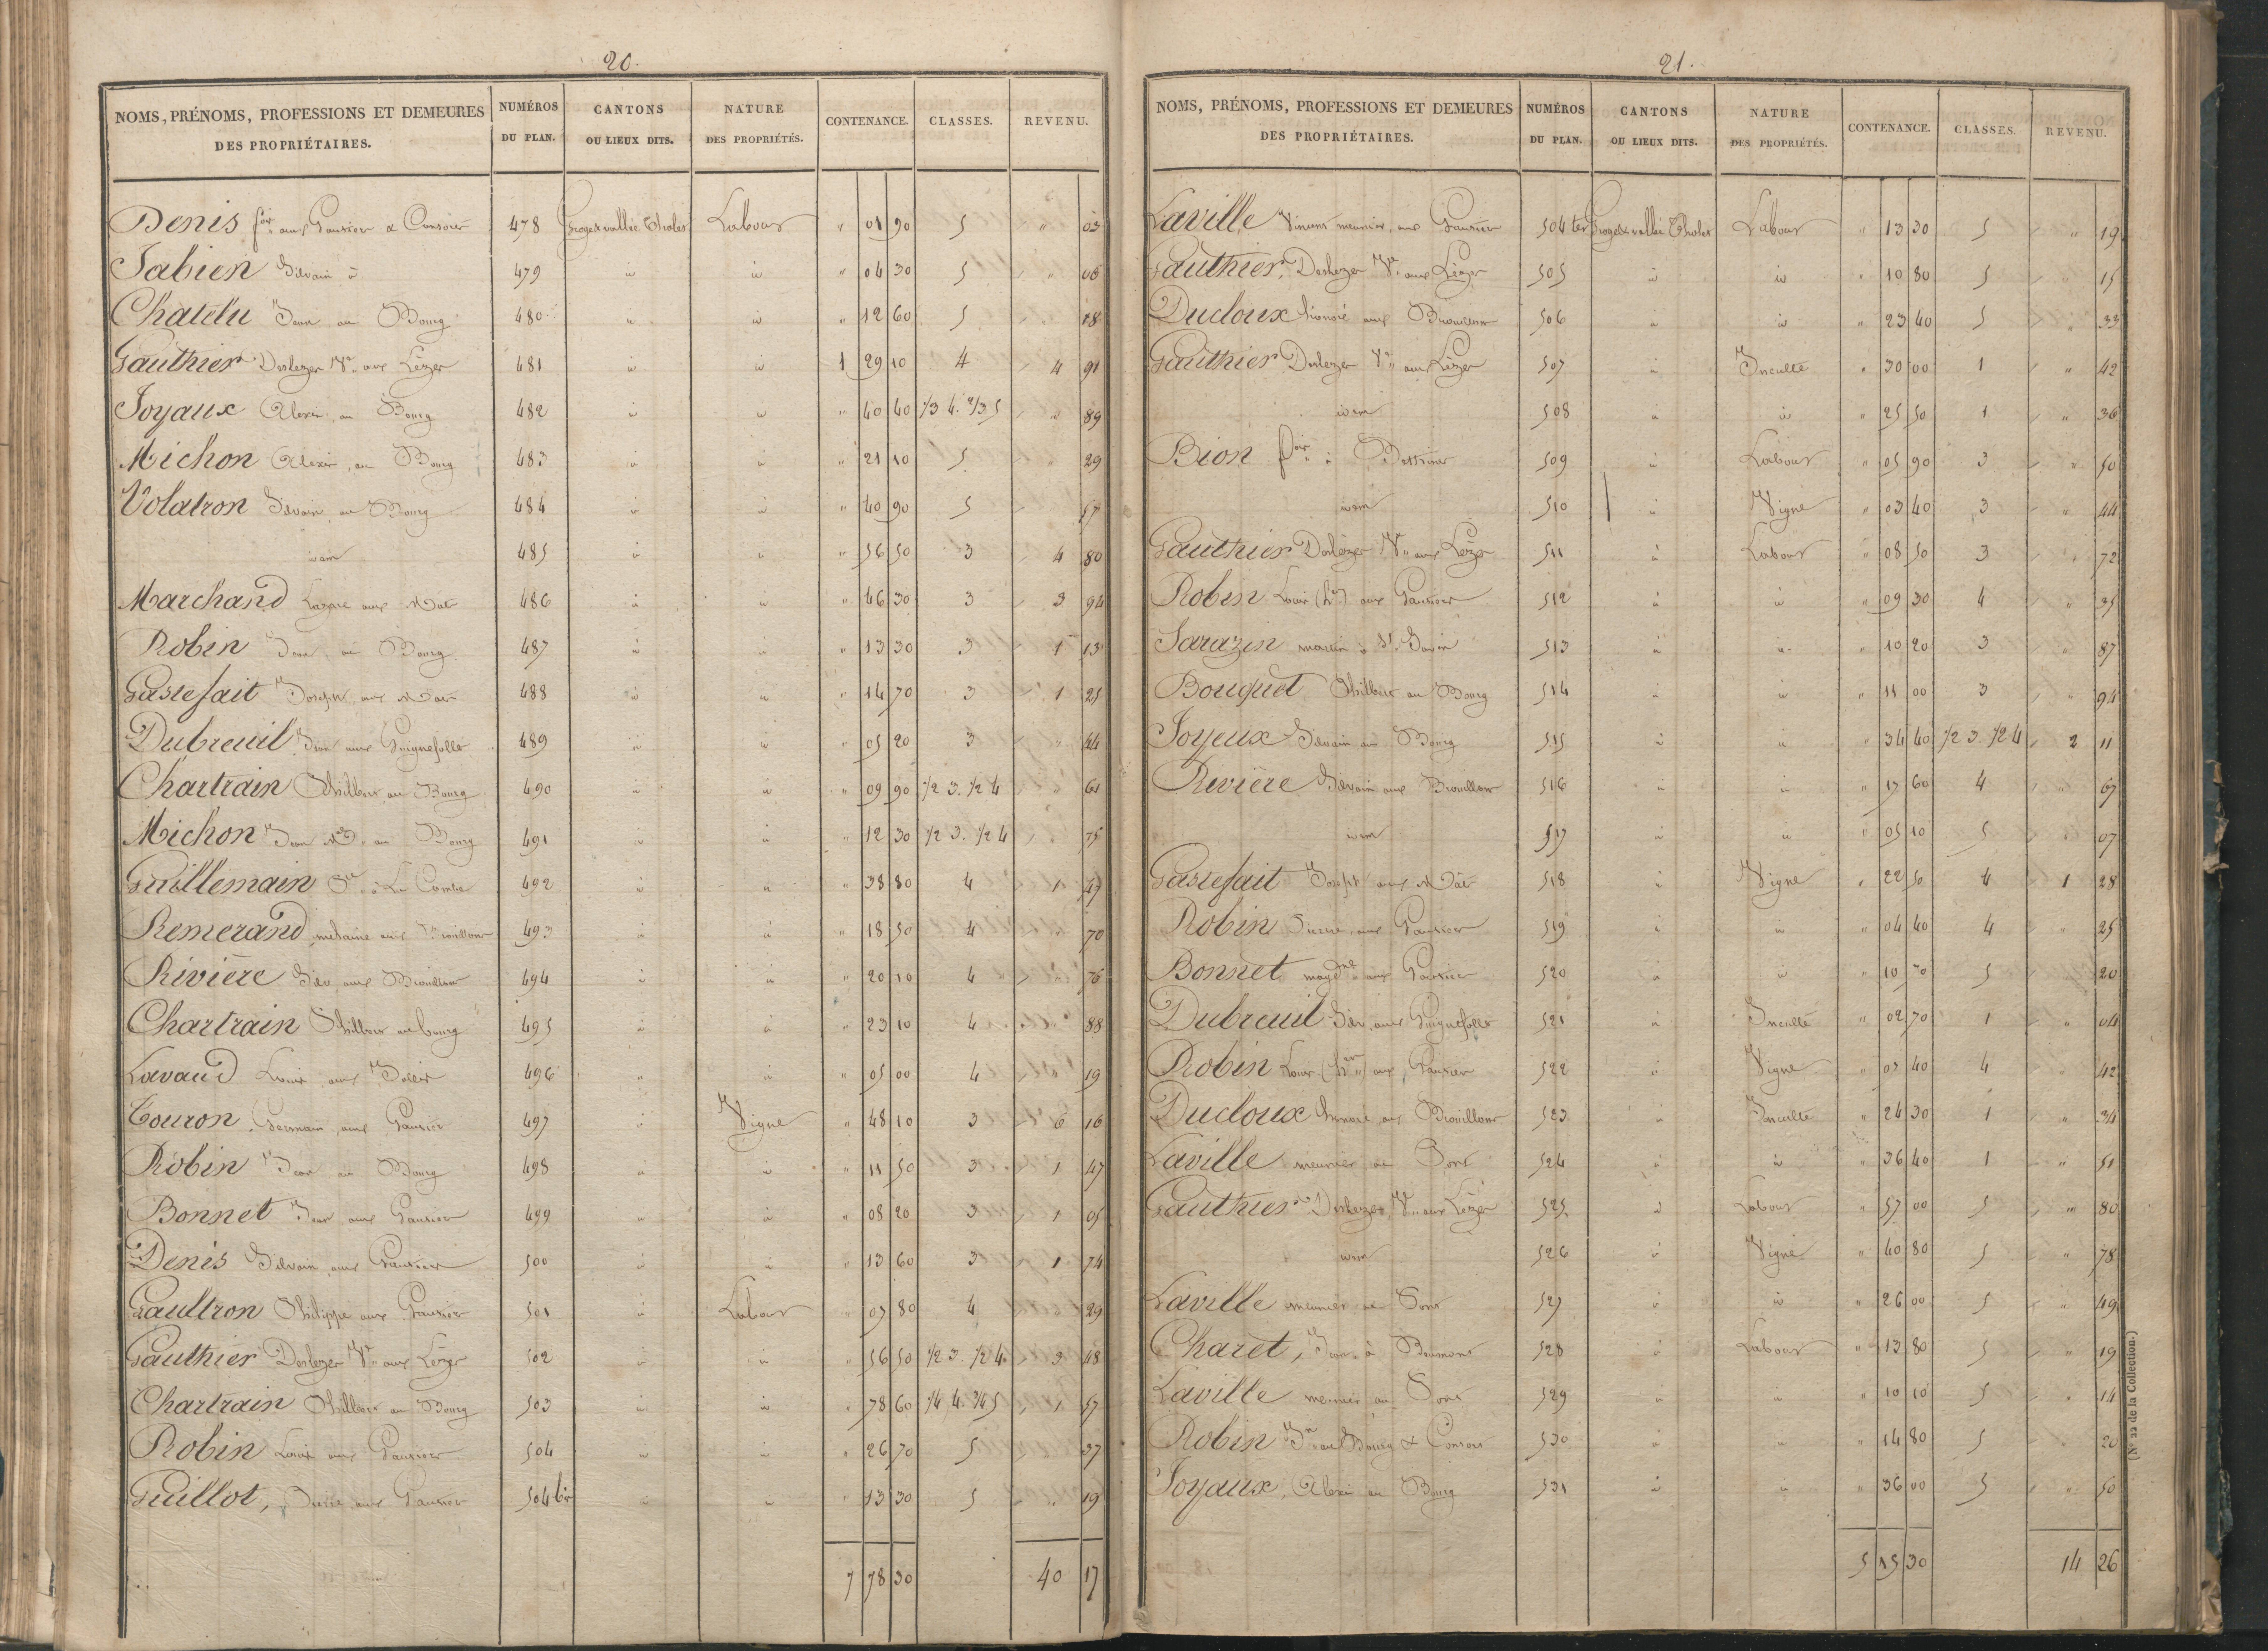 20.
NOMS, PRÉNOMS, PROFESSIONS ET DEMEURES DES PROPRIÉTAIRES. NUMÉROS DU PLAN. CANTONS OU LIEUX DITS. NATURE DES PROPRIÉTÉS. CONTENANCE. CLASSES. REVENU.
Denis 478 Labour " 01 90 5 " 03
Fabien Silvain 479 id id " 04 30 5 " 06
Chatelu Jean au Bourg 480 id id " 12 60 5 18
Gauthier Deslezer Ve aux Lézer 481 id id 1 29 10 4 4 91
Joyaux Alexis au Bourg 482 id id " 40 40 1/3 4. 2/3 5 " 89
Michon Alexis, au Bourg 483 id id " 21 10 5 " 29
Volatron Silvain au Bourg 484 id id " 40 90 5 57
idem 485 id id " 56 50 3 4 80
Marchand Lazare aux 486 id id " 46 30 3 3 94
Robin Jean, au Bourg 487 id id " 13 30 3 1 13
Gastefait Joseph aux 488 id id " 14 70 3 1 25
Dubreuil Jean aux Guignefolle 489 id id " 05 20 3 " 44
Chartrain Philbert au Bourg 490 id id " 09 90 1/2 3. 1/2 4 61
Michon Jean au Bourg 491 id id " 12 30 1/2 3. 1/2 4 75
Guillemain à La Combe 492 id id " 38 80 4 1 47
Remerand aux Brouillons 493 id id " 18 50 4 " 70
Rivière Silv aux Brouillons 494 id id " 20 10 4 76
Chartrain Philbert au bourg 495 id id " 23 10 4 88
Lavaud Louis aux 496 id id " 05 00 4 " 19
Touron Germain aux Gautier 497 id Vigne " 48 10 3 6 16
Robin Jean au Bourg 498 id id " 11 50 3 1 47
Bonnet Jean aux Gautier 499 id id " 08 20 3 1 05
Denis Silvain aux Gautier 500 id id " 13 60 3 1 74
Gaultron Philippe aux Gautier 501 id Labour " 07 80 4 29
Gauthier Deslezer Ve aux Lézer 502 id id " 56 50 1/2 3. 1/2 4. 3 48
Chartrain Philbert au Bourg 503 id id " 78 60 1/4 4. 3/4 5 1 57
Robin Louis aux Gautier 504 id id " 26 70 5 37
Guillot, Pierre aux Gautier 504 bis id id " 13 30 5 " 19
7 78 30 40 17
21.
NOMS, PRÉNOMS, PROFESSIONS ET DEMEURES DES PROPRIÉTAIRES. NUMÉROS DU PLAN. CANTONS OU LIEUX DITS. NATURE DES PROPRIÉTÉS. CONTENANCE. CLASSES. REVENU.
Laville meunier, aux Gautier 504 ter Labour " 13 30 5 " 19
Gauthier Deslezer Ve aux Lézer 505 id id " 10 80 5 " 15
Ducloux honoré aux Brouillons 506 id id " 23 40 5 " 33
Gauthier Deslezer Ve aux Lézer 507 id Inculte " 30 00 1 " 42
idem 508 id id " 25 50 1 " 36
Bion à 509 id Labour " 05 90 3 " 50
idem 510 id Vigne " 03 40 3 " 44
Gauthier Deslezer Ve aux Lézer 511 id Labour " 08 50 3 " 72
Robin Louis aux Gautier 512 id id " 09 30 4 " 35
Sarazin martin à St. Savin 513 id id " 10 20 3 " 87
Bouquet Philbert au Bourg 514 id id " 11 00 3 " 94
Joyeux Silvain au Bourg 515 id id " 34 40 1/2 3. 1/2 4 2 11
Rivière Silvain aux Brouillons 516 id id " 17 60 4 " 67
idem 517 id id " 05 10 5 07
Gastefait Joseph aux 518 id Vigne " 22 50 4 1 28
Robin Pierre aux Gautier 519 id id " 04 40 4 " 25
Bonnet aux Gautier 520 id id " 10 70 5 20
Dubreuil Silv. aux Guignefolle 521 id Inculte " 02 70 1 " 04
Robin Louis aux Gautier 522 id Vigne " 07 40 4 " 42
Ducloux honoré aux Brouillons 523 id Inculte " 24 30 1 " 34
Laville meunier au Pont 524 id id " 36 40 1 " 51
Gauthier Deslezer Ve aux Lézer 525 id Labour " 57 00 5 " 80
idem 526 id Vigne " 40 80 5 78
Laville meunier au Pont 527 id id " 26 00 5 " 49
Charet, Jean à Beaumont 528 id Labour " 13 80 5 " 19
Laville meunier au Pont 529 id id " 10 10 5 " 14
Robin Jn au Bourg & Consors 530 id id " 14 80 5 " 20
Joyaux, Alexis au Bourg 531 id id " 36 00 5 " 50
5 15 30 14 26
(No 22 de la Collection.)